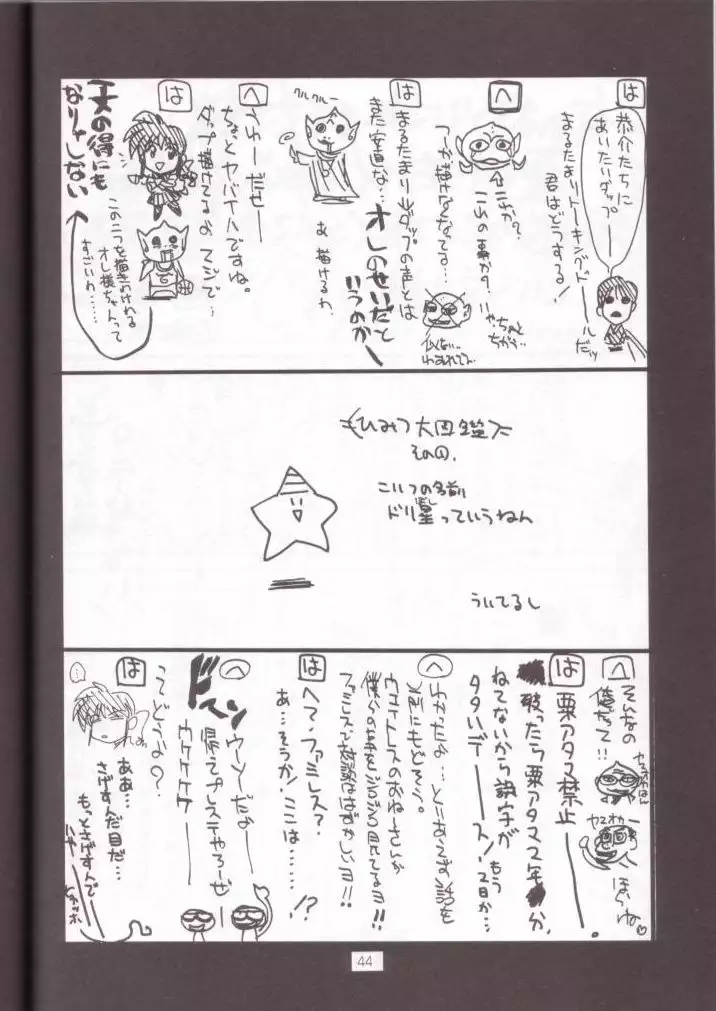 は
恭介たちに
あいたいダップ
まるたまりトーキングドールだッ
君はどうする!
へ
これか?
これの事か?
つーか描けなくなってる…
いや、ちゃんと
ちがう…
は
まるたまりはダップの声とは
また安直な…
オレのせいだと
いうのかー
クルクルー
あ、描けるわ
へ
うわーだせー
ちょっとヤバイハですね。
ダップ描けてるよ、マジで…
は
この二つを描きわけれる
オレ様ちゃんって
すごいわ……
一文の得にも
なりゃしない
ひみつ大図鑑
その①.
こいつの名前
ドリ星っていうねん
ぼし
ういてるし
へ
そんなの
俺だって!!
ヤスオカー号
ほらね♡
は
栗アタマ禁止ー.
破ったら栗アタマ2年分、
ねてないから誤字が もう2日か…
タタいデースノ
へ
わかったよ…とりあえず話を
元にもどそう。
ウェイトレスのおねーさんが
僕らの事をジロジロ見てるヨ!!
ファミレスで対談ははずかしいヨ!!
は
へて、ファミレス?
あ…そうか!ここは……!?
へ
ドスーン
ウーソだよー
帰ってプレステやろーぜ
ウケケケケー
は
ってどうよ?
ああ…
さげすんだ目だ…
もっとさげすんで
44